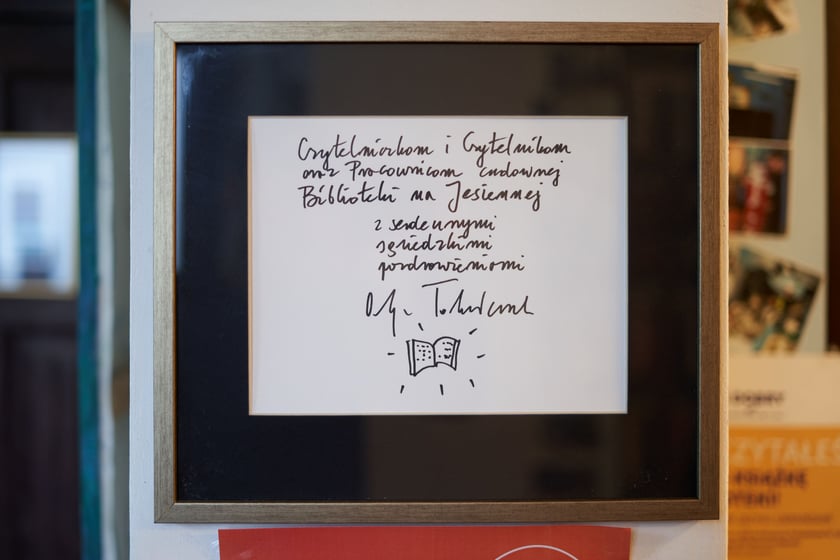 Czytelniczkom i Czytelnikom
oraz Pracownicom cudownej
Biblioteki na Jesiennej
z serdecznymi
sąsiedzkimi
pozdrowieniami
Olga Tokarczuk
DOBRY
CZYTAŁEŚ
KSIĄŻKĘ